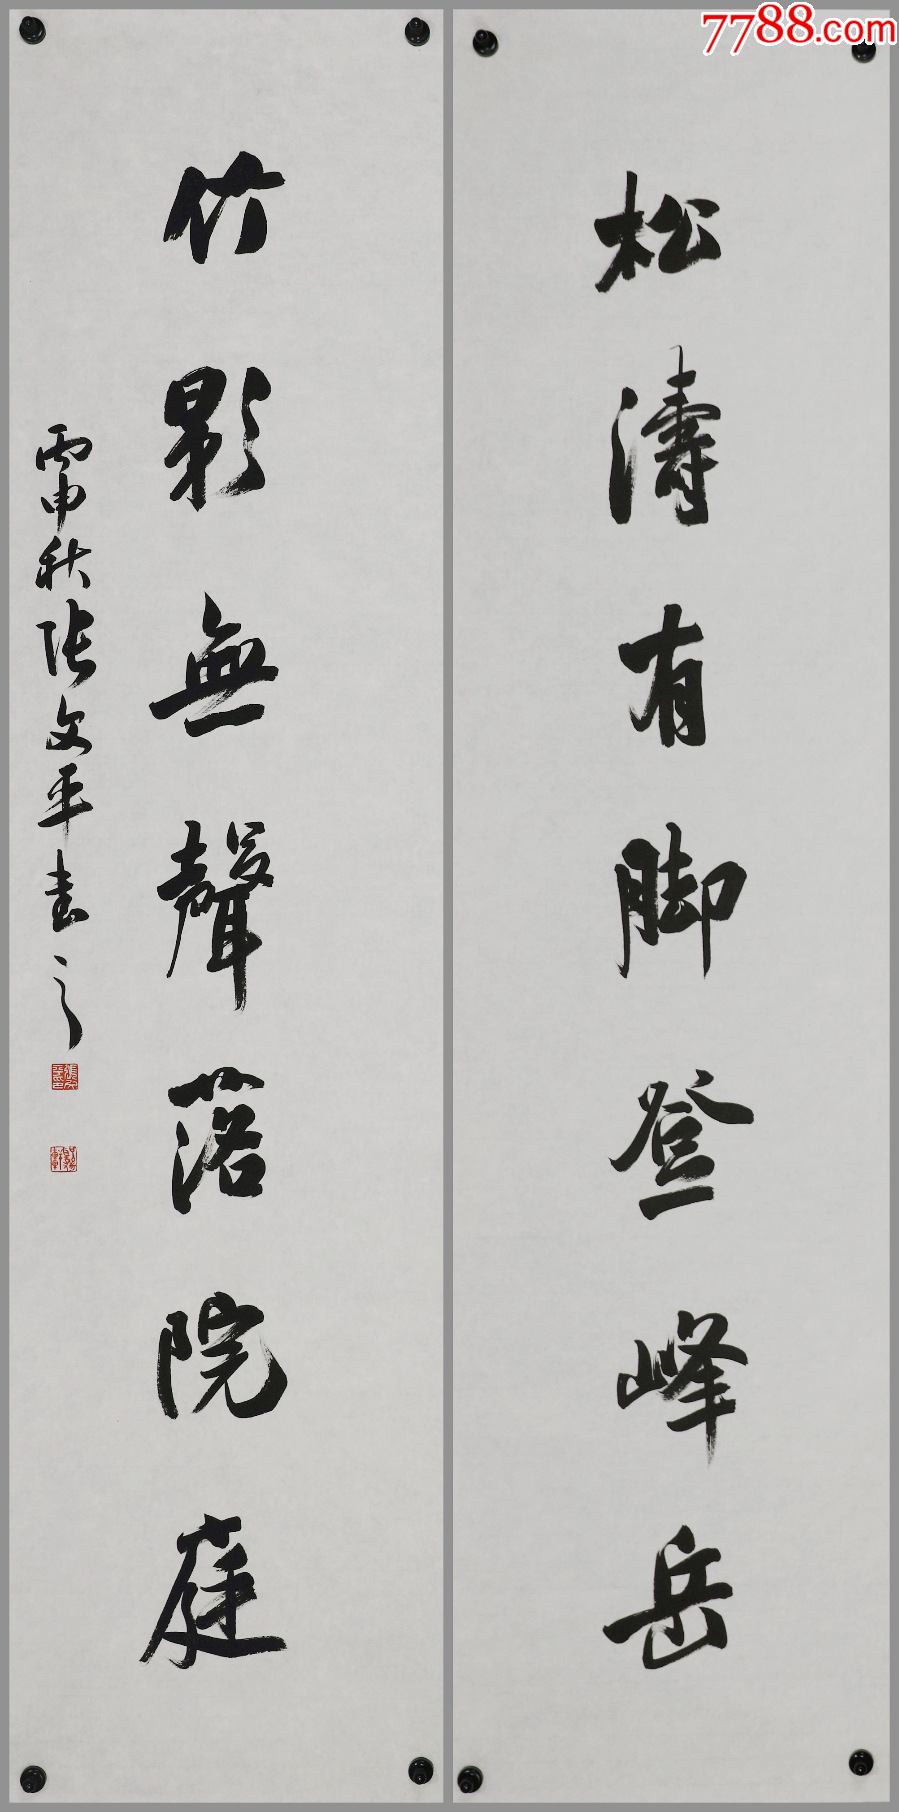 松濤有脚登峰岳
竹影無聲落院庭
丙申秋張文平書之
7788.com